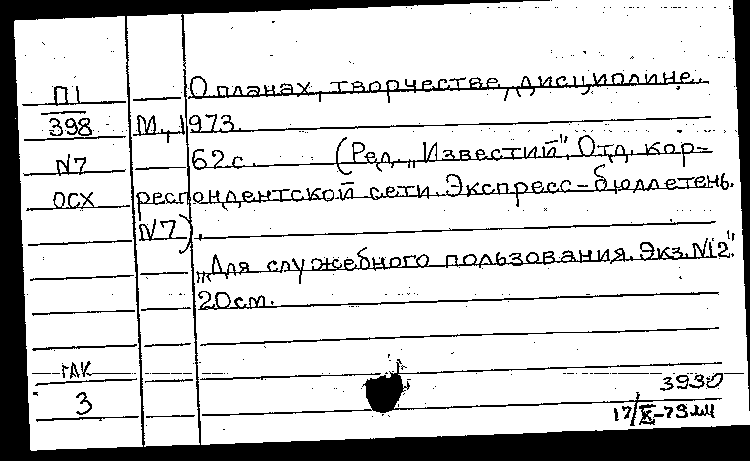 П1 О планах, творчестве, дисциплине.
398 М., 1973.
N7 62с. (Ред. „Известий". Отд. кор-
ОСХ респондентской сети. Экспресс-бюллетень.
N7).
„Для служебного пользования. Экз. N12".
20см.
ГАК
3 3930
17/IX-73